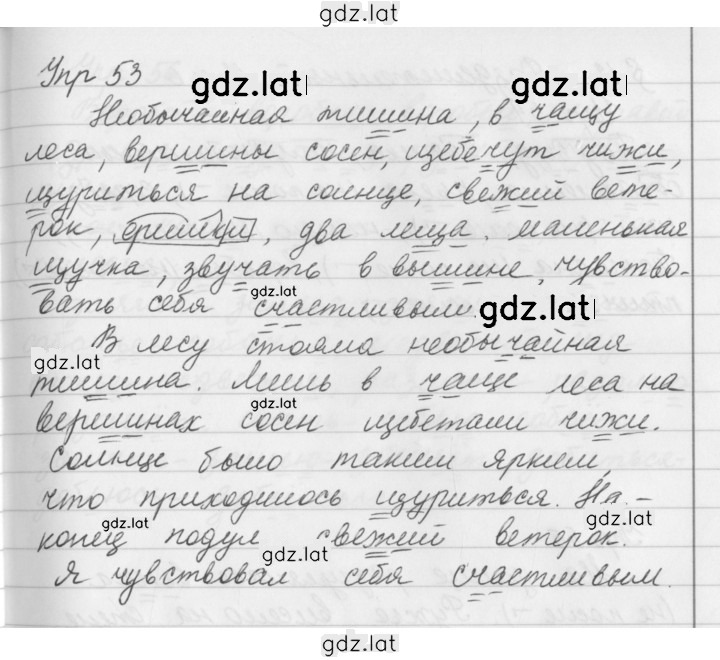 gdz.lat
Упр 53
gdz.lat
Необычайная тишина, в чащу
леса, вершины сосен, щебечут чижи,
щуриться на солнце, свежий вете-
gdz.lat
рок, , два леща, маленькая
щучка, звучать в вышине, чувство-
вать себя счастливым.
gdz.lat
gdz.lat
В лесу стояла необычайная
gdz.lat
тишина. Лишь в чаще леса на
gdz.lat
вершинах сосен щебетали чижи.
Солнце было таким ярким,
что приходилось щуриться. На-
gdz.lat
конец подул свежий ветерок.
gdz.lat
Я чувствовал себя счастливым.
gdz.lat